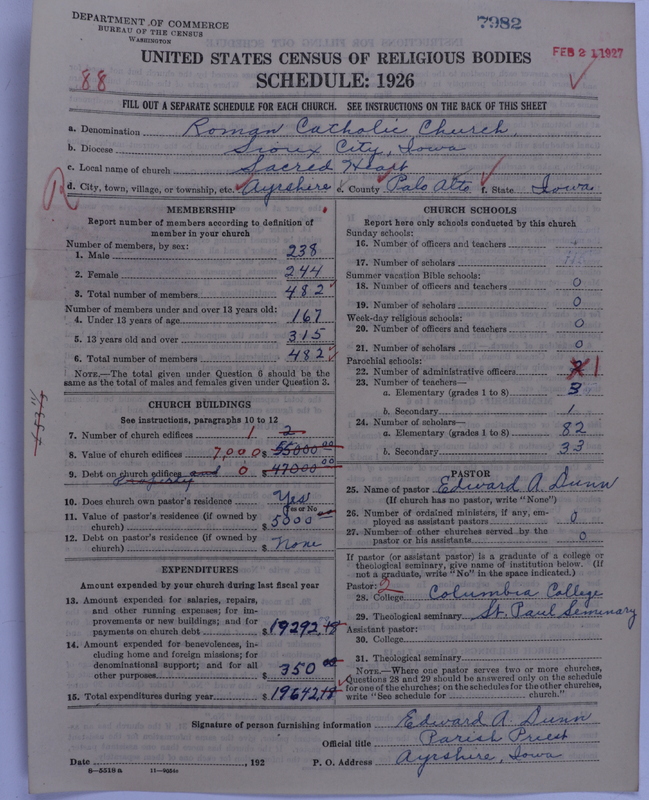 DEPARTMENT OF COMMERCE
BUREAU OF THE CENSUS
WASHINGTON
7982
FEB 21 1927
UNITED STATES CENSUS OF RELIGIOUS BODIES
SCHEDULE: 1926
88
FILL OUT A SEPARATE SCHEDULE FOR EACH CHURCH. SEE INSTRUCTIONS ON THE BACK OF THIS SHEET
a. Denomination Roman Catholic Church,
b. Diocese Sioux City, Iowa
c. Local name of church Sacred Heart
d. City, town, village, or township, etc. Ayrshire e. County Palo Alto f. State Iowa
R
MEMBERSHIP
Report number of members according to definition of
member in your church
Number of members, by sex:
1. Male 238
2. Female 244
3. Total number of members 482
Number of members under and over 13 years old:
4. Under 13 years of age 167
5. 13 years old and over 315
6. Total number of members 482
NOTE.—The total given under Question 6 should be the
same as the total of males and females given under Question 3.
CHURCH BUILDINGS
See instructions, paragraphs 10 to 12
7. Number of church edifices 1 2
8. Value of church edifices 7,000 $ 55000 00
9. Debt on church edifices and 0 $ 47000 00
property
10. Does church own pastor's residence Yes
(Yes or No)
11. Value of pastor's residence (if owned by
church) $ 5000
12. Debt on pastor's residence (if owned by
church) $ None
EXPENDITURES
Amount expended by your church during last fiscal year
13. Amount expended for salaries, repairs,
and other running expenses; for im-
provements or new buildings; and for
payments on church debt $ 19292.48
14. Amount expended for benevolences, in-
cluding home and foreign missions; for
denominational support; and for all
other purposes $ 350 00
15. Total expenditures during year $ 19642.48
CHURCH SCHOOLS
Report here only schools conducted by this church
Sunday schools:
16. Number of officers and teachers
17. Number of scholars
Summer vacation Bible schools:
18. Number of officers and teachers 0
19. Number of scholars 0
Week-day religious schools:
20. Number of officers and teachers 0
21. Number of scholars 0
Parochial schools:
22. Number of administrative officers 1
23. Number of teachers—
a. Elementary (grades 1 to 8) 3
b. Secondary 1
24. Number of scholars—
a. Elementary (grades 1 to 8) 82
b. Secondary 33
PASTOR
25. Name of pastor Edward A. Dunn
(If church has no pastor, write "None")
26. Number of ordained ministers, if any, em-
ployed as assistant pastors 0
27. Number of other churches served by the
pastor or his assistants 0
If pastor (or assistant pastor) is a graduate of a college or
theological seminary, give name of institution below. (If
not a graduate, write "No" in the space indicated.)
Pastor: 2
28. College Columbia College
29. Theological seminary St. Paul Seminary
Assistant pastor:
30. College
31. Theological seminary
NOTE.—Where one pastor serves two or more churches,
Questions 28 and 29 should be answered only on the schedule
for one of the churches; on the schedules for the other churches,
write "See schedule for church."
Signature of person furnishing information Edward A. Dunn
Official title Parish Priest
Date , 192 P. O. Address Ayrshire, Iowa
8—5518a 11—9054